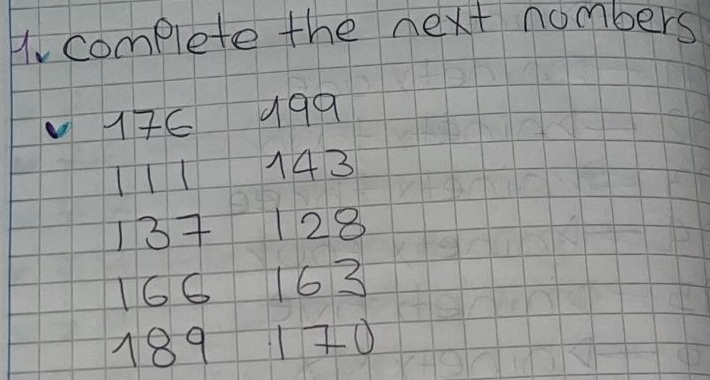 1. complete the next nombers
176 199
111 143
137 128
166 163
189 170